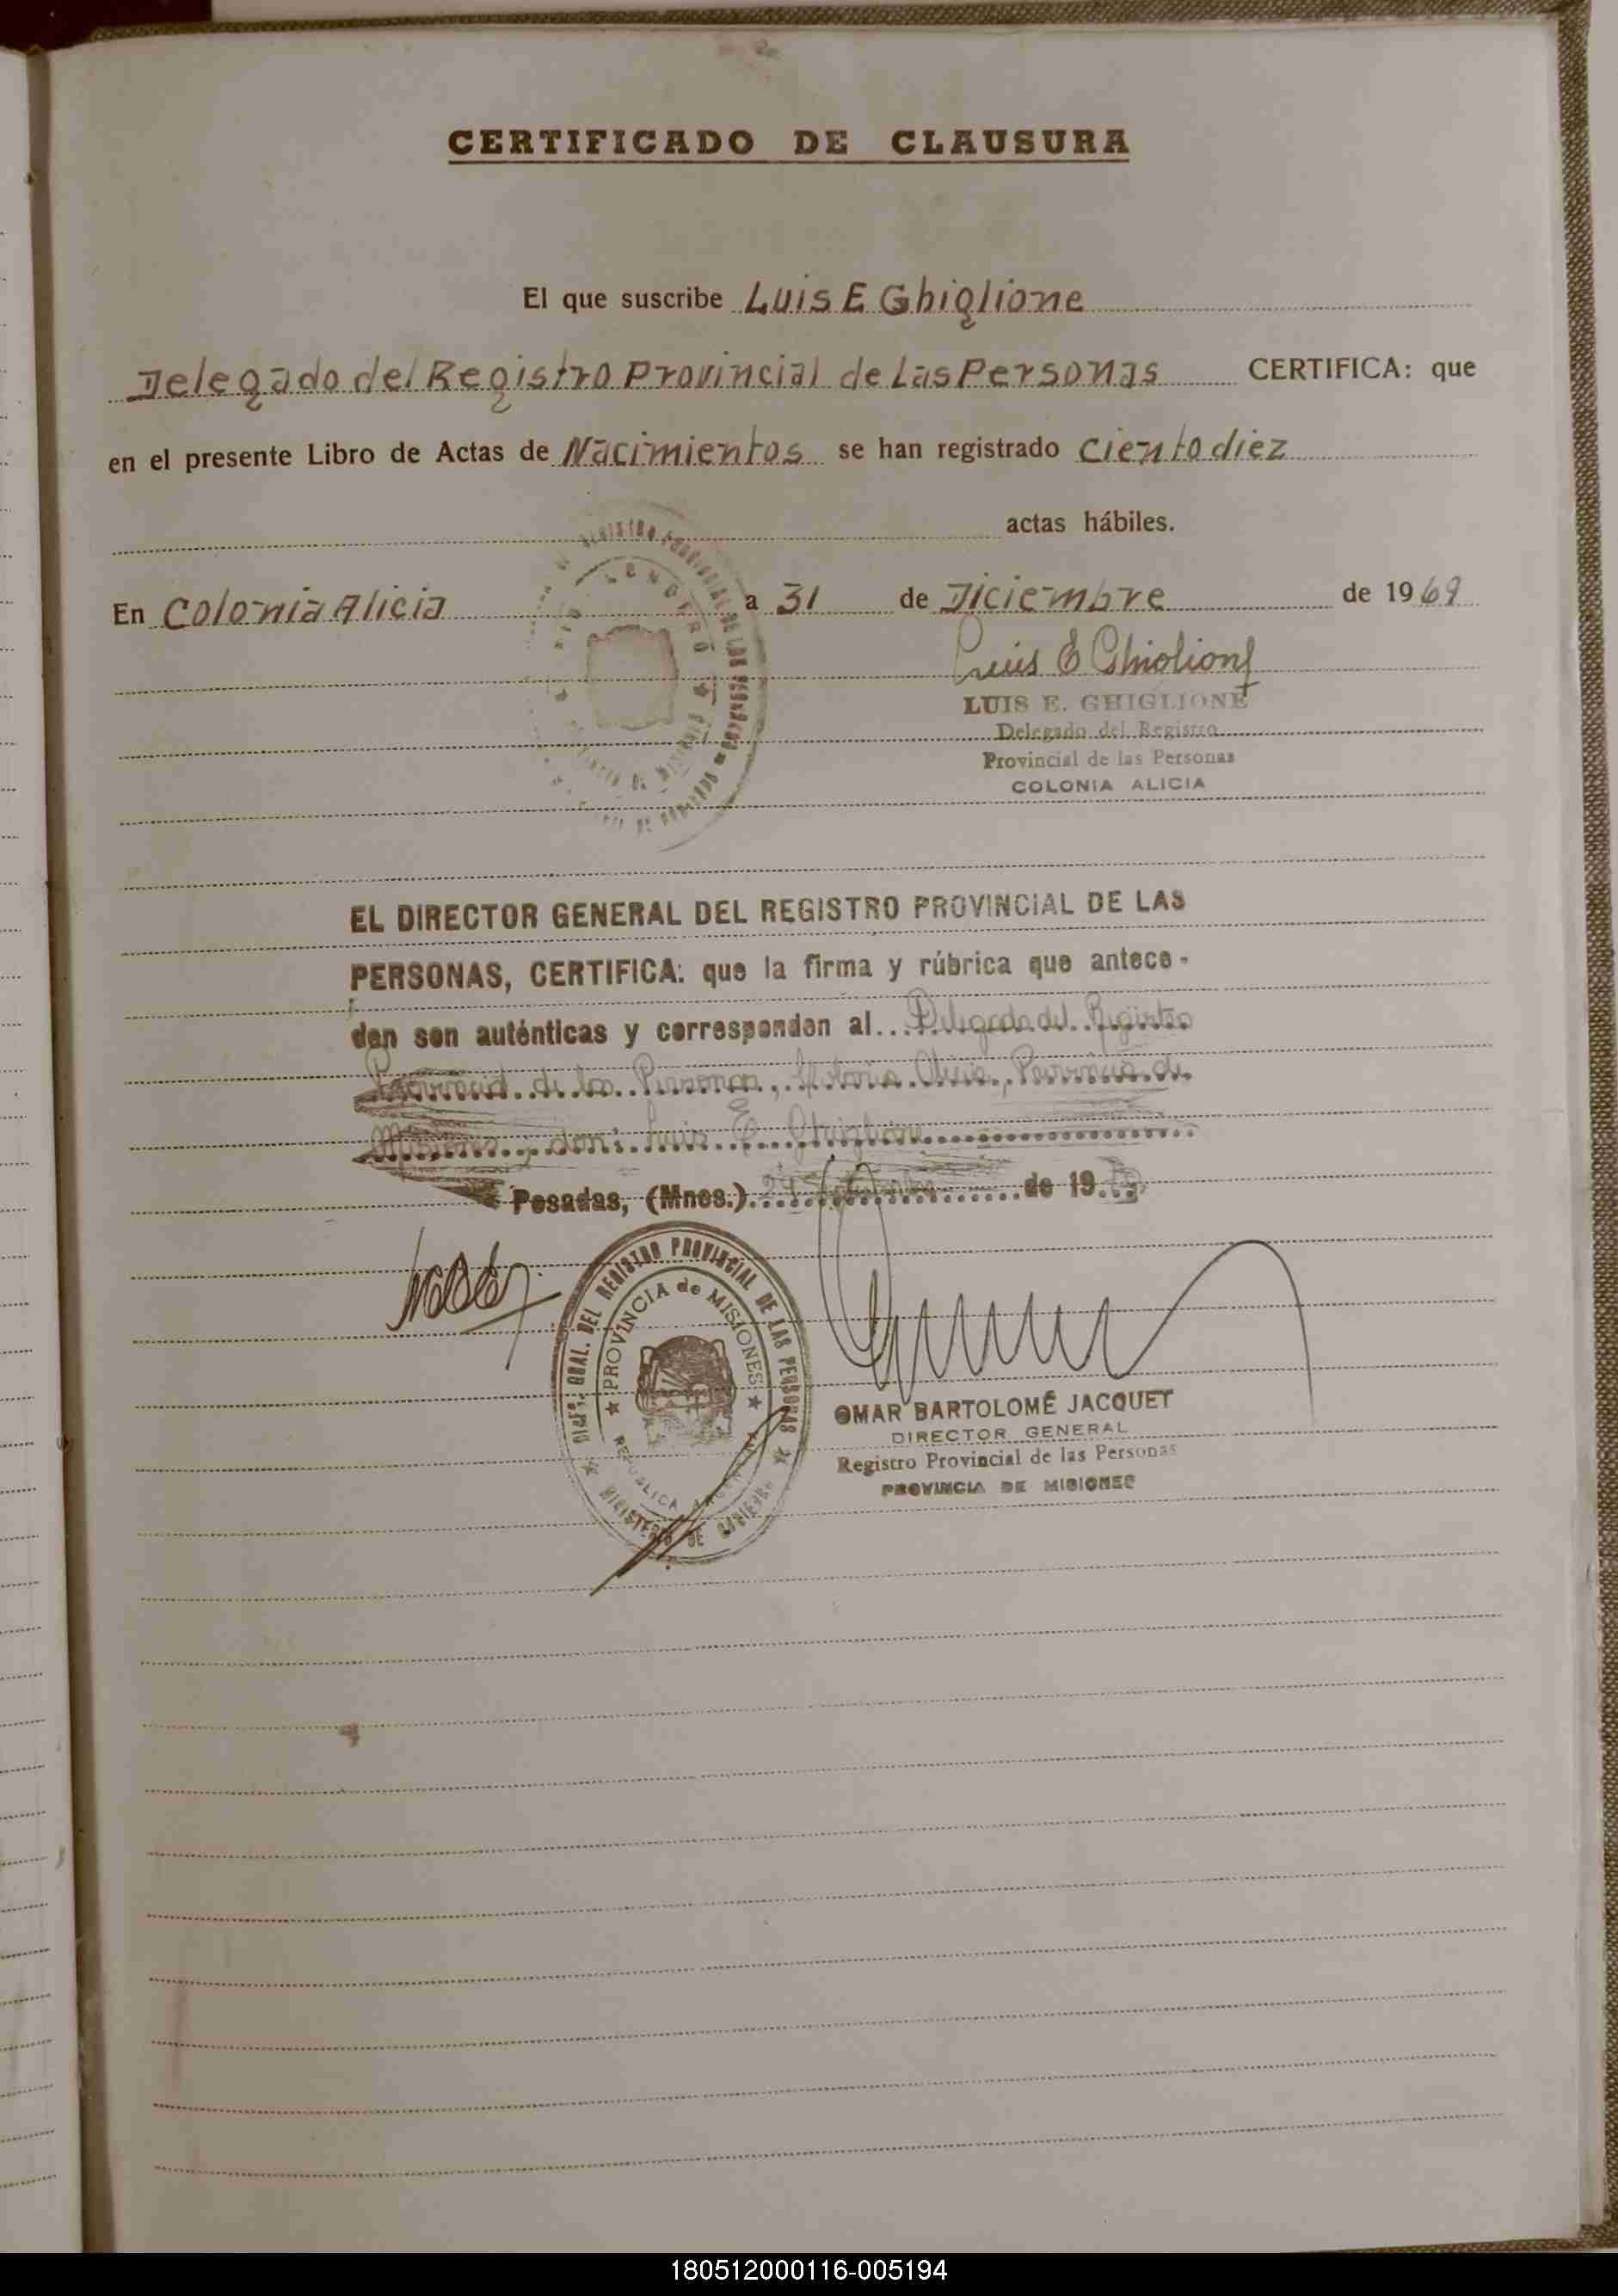 CERTIFICADO DE CLAUSURA
El que suscribe Luis E Ghiglione
Delegado del Registro Provincial de Las Personas CERTIFICA: que
en el presente Libro de Actas de Nacimientos se han registrado ciento diez
actas hábiles.
En Colonia Alicia a 31 de Diciembre de 1969
Luis E Ghiglione
LUIS E. GHIGLIONE
Delegado del Registro
Provincial de las Personas
COLONIA ALICIA
EL DIRECTOR GENERAL DEL REGISTRO PROVINCIAL DE LAS
PERSONAS, CERTIFICA: que la firma y rúbrica que antece-
den son auténticas y corresponden al Delegado del Registro
Provincial de las Personas, Colonia Alicia, Provincia de
Misiones, don: Luis E. Ghiglione
Posadas, (Mnes.) de 19
DIREC. GRAL. DEL REGISTRO PROVINCIAL DE LAS PERSONAS
PROVINCIA de MISIONES
REPUBLICA ARGENTINA
MINISTERIO DE GOBIERNO
OMAR BARTOLOMÉ JACQUET
DIRECTOR GENERAL
Registro Provincial de las Personas
PROVINCIA DE MISIONES
180512000116-005194